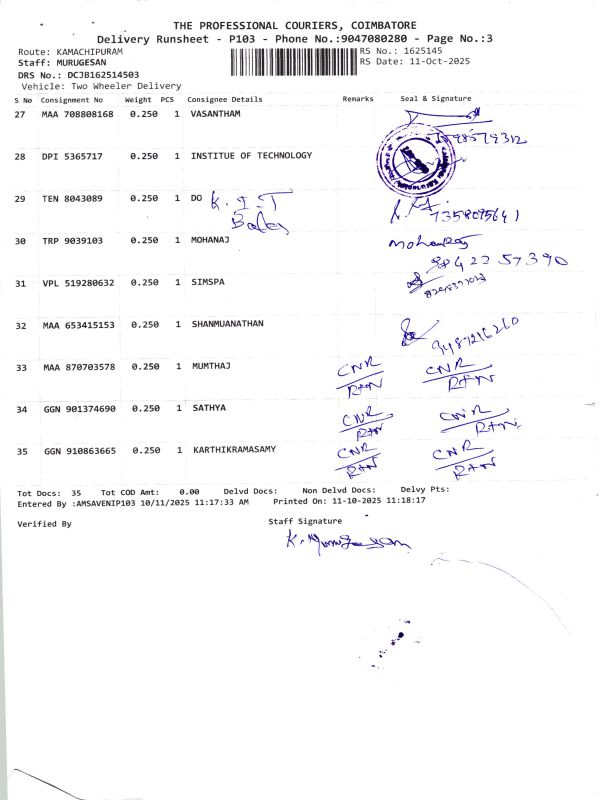 THE PROFESSIONAL COURIERS, COIMBATORE
Delivery Runsheet - P103 - Phone No.:9047080280 - Page No.:3
Route: KAMACHIPURAM RS No.: 1625145
Staff: MURUGESAN RS Date: 11-Oct-2025
DRS No.: DCJB162514503
Vehicle: Two Wheeler Delivery
S No Consignment No Weight PCS Consignee Details Remarks Seal & Signature
27 MAA 708808168 0.250 1 VASANTHAM
28 DPI 5365717 0.250 1 INSTITUE OF TECHNOLOGY
29 TEN 8043089 0.250 1 DO K.I.T
30 TRP 9039103 0.250 1 MOHANAJ
9842257390
31 VPL 519280632 0.250 1 SIMSPA
32 MAA 653415153 0.250 1 SHANMUANATHAN
9487216260
33 MAA 870703578 0.250 1 MUMTHAJ CNR CNR
RTN RTN
34 GGN 901374690 0.250 1 SATHYA CNR CNR
RTN RTN
35 GGN 910863665 0.250 1 KARTHIKRAMASAMY CNR CNR
RTN RTN
Tot Docs: 35 Tot COD Amt: 0.00 Delvd Docs: Non Delvd Docs: Delvy Pts:
Entered By :AMSAVENIP103 10/11/2025 11:17:33 AM Printed On: 11-10-2025 11:18:17
Verified By Staff Signature
K. Murugesan